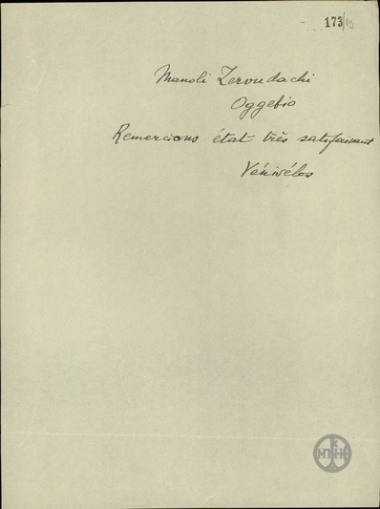 173/13
Manoli Zervudachi
Oggebio
Remercions état très satisfaisant
Vénisélos